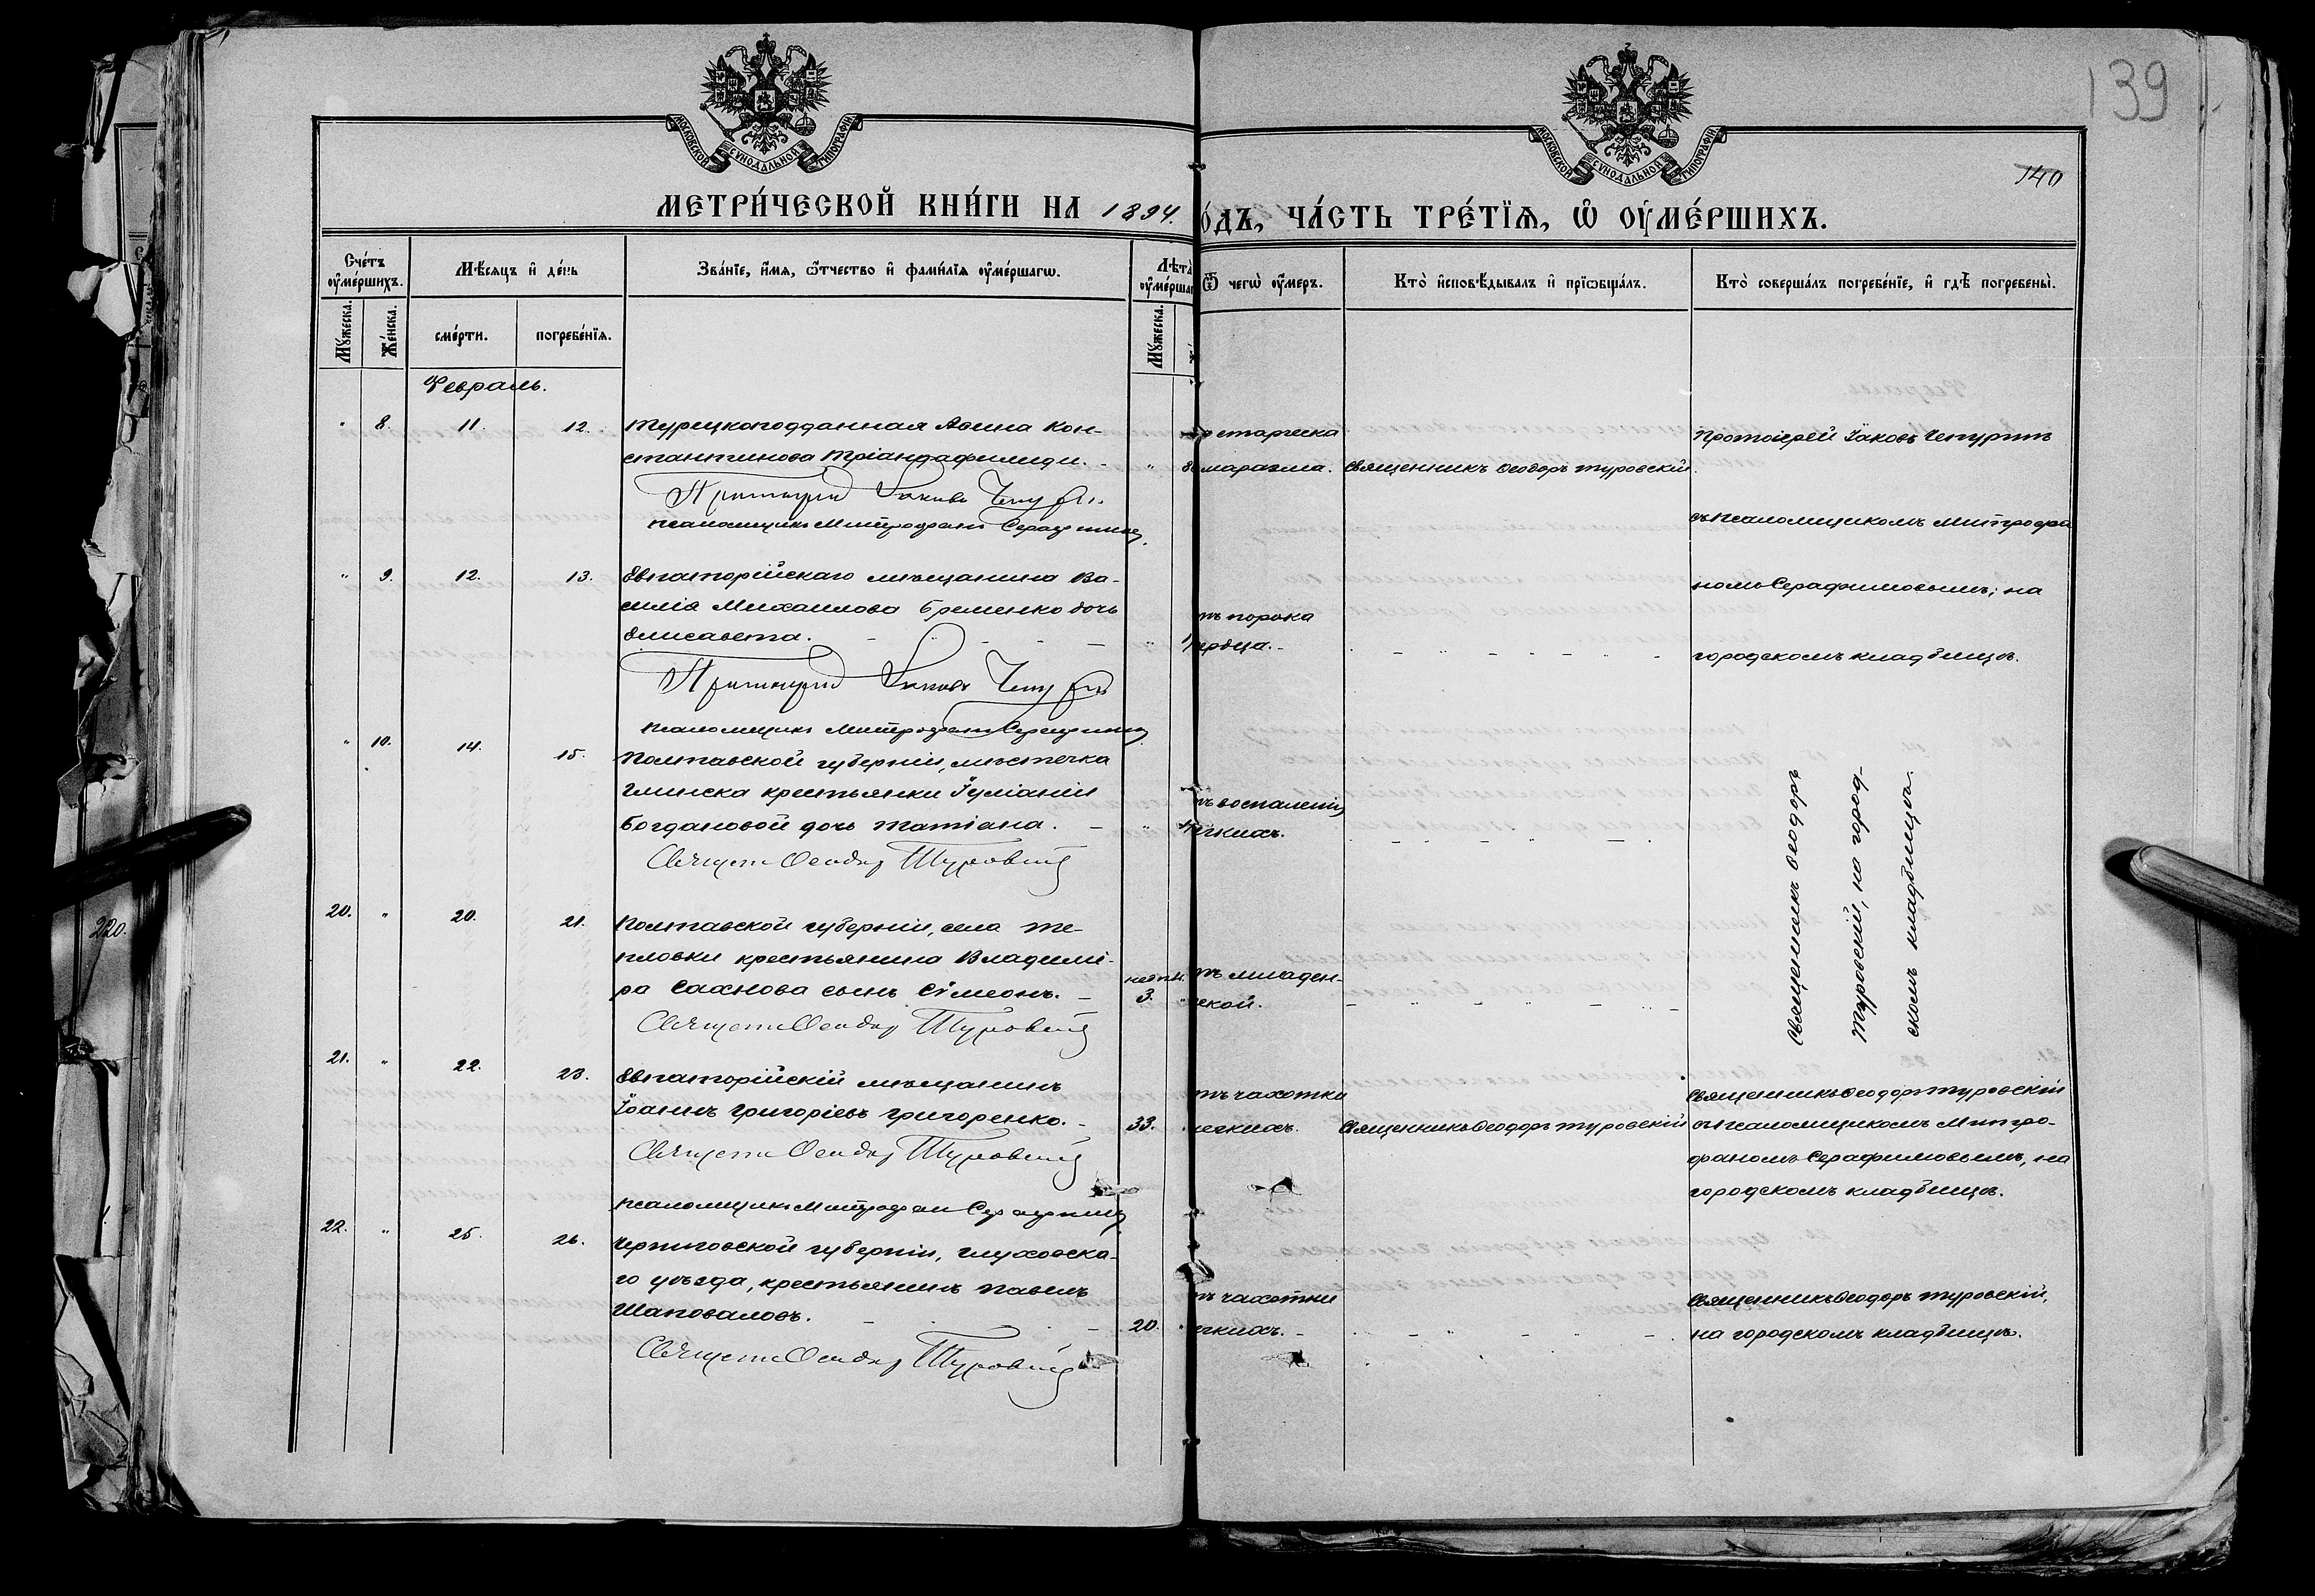 139
140
МОСКОВСКОЙ СѴНОДАЛЬНОЙ ТИПОГРАФІИ
МОСКОВСКОЙ СѴНОДАЛЬНОЙ ТИПОГРАФІИ
МЕТРИ́ЧЕСКОЙ КНИ́ГИ НА 1894.
О́ДЪ, ЧА́СТЬ ТРЕ́ТЇѦ, Ѡ҆ ОУ҆МЕ́РШИХЪ.
Сче́тъ оу҆ме́ршихъ.
Мѣ́сяцъ и҆ де́нь
Зва́нїе, и҆́мя, ѻ҆́тчество и҆ фами́лїя оу҆ме́ршагѡ.
Лѣта̀ оу҆ме́ршаг
Ѿ чегѡ̀ оу҆́меръ.
Кто̀ и҆сповѣ́дывалъ и҆ прїѡбща́лъ.
Кто̀ соверша́лъ погребе́нїе, и҆ гдѣ̀ погребены̀.
Мꙋ́жеска.
Же́нска.
сме́рти.
погребе́нїя.
Мꙋ́жеска.
Февраль.
" 8. 11. 12. Турецкоподданная Аѳина Кон-
стантинова Тріандафилиди. -
Протоіерей Іаковъ Чепуринъ
псаломщикъ Митрофанъ Серафимовъ
старческа
маразма.
Священникъ Ѳеодоръ Туровскій.
Протоіерей Іаковъ Чепуринъ
съ псаломщикомъ Митрофа
номъ Серафимовымъ; на
городскомъ кладбищѣ.
" 9. 12. 13. Евпаторійскаго мѣщанина Ва-
силія Михаилова Еременко дочь
Елисавета.
Протоіерей Іаковъ Чепуринъ
псаломщикъ Митрофанъ Серафимовъ
тъ порока
ердца. -
" 10. 14. 15. Полтавской губерніи, мѣстечка
Глинска крестьянки Іуліаніи
Богдановой дочь Татіана. -
Священ. Ѳеодоръ Туровскій
тъ воспаленія
егкихъ.
Священникъ Ѳеодоръ
Туровскій, на город-
скомъ кладбищѣ.
20. " 20. 21. Полтавской губерніи, села Те-
пловки крестьянина Владимі-
ра Сахнова сынъ Сѵмеонъ. -
Священ. Ѳеодоръ Туровскій
недѣли.
3.
тъ младен-
ской.
21. " 22. 23. Евпаторійскій мѣщанинъ
Іоаннъ Григоріевъ Григоренко. -
33.
Священ. Ѳеодоръ Туровскій
псаломщикъ Митрофанъ Серафимовъ
тъ чахотки
легкихъ.
Священникъ Ѳеодоръ Туровскій
Священникъ Ѳеодоръ Туровскій
съ псаломщикомъ Митро-
фаномъ Серафимовымъ, на
городскомъ кладбищѣ.
22. " 25. 26. Черниговской губерніи, Глуховска-
го уѣзда, крестьянинъ Павелъ
Шаповаловъ.
20.
Священ. Ѳеодоръ Туровскій
тъ чахотки
егкихъ. -
Священникъ Ѳеодоръ Туровскій,
на городскомъ кладбищѣ.
220.